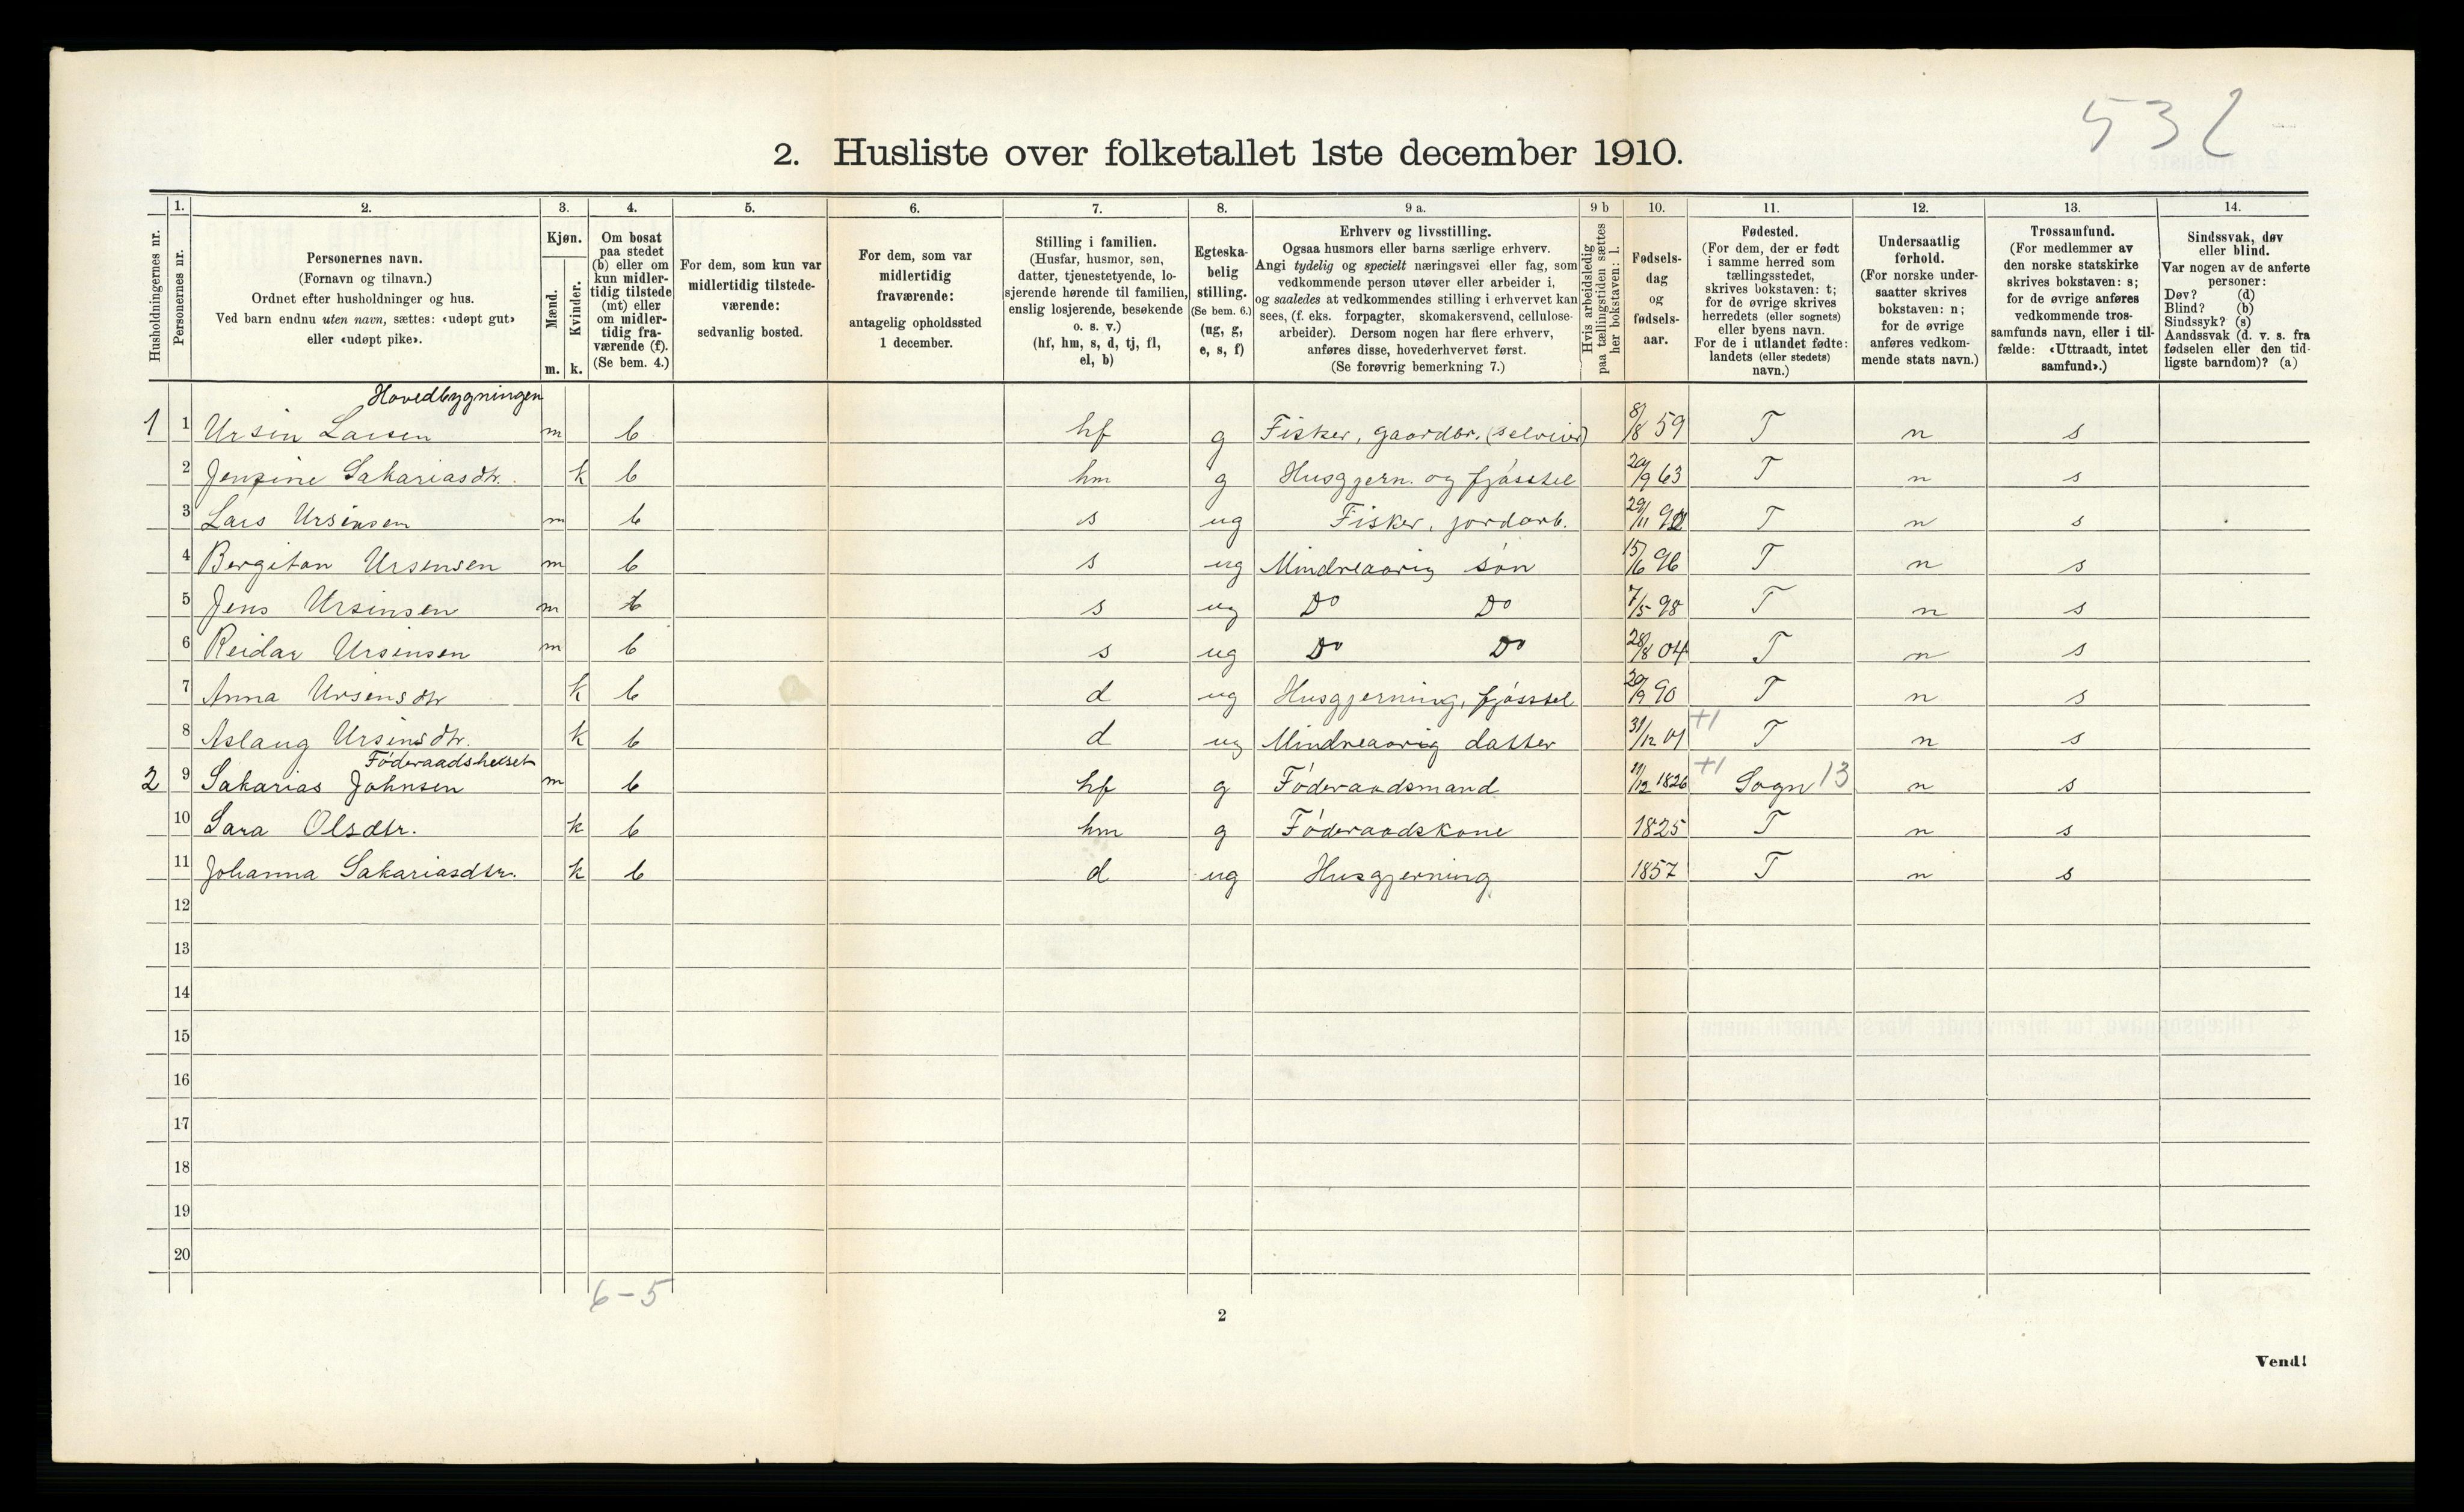 532
2. Husliste over folketallet 1ste december 1910.
Husholdningernes nr.
1.
Personernes nr.
2.
Personernes navn.
(Fornavn og tilnavn.)
Ordnet efter husholdninger og hus.
Ved barn endnu uten navn, sættes: «udøpt gut»
eller «udøpt pike».
3.
Kjøn.
Mænd.
Kvinder.
m. k.
4.
Om bosat
paa stedet
(b) eller om
kun midler-
tidig tilstede
(mt) eller
om midler-
tidig fra-
værende (f).
(Se bem. 4.)
5.
For dem, som kun var
midlertidig tilstede-
værende:
sedvanlig bosted.
6.
For dem, som var
midlertidig
fraværende:
antagelig opholdssted
1 december.
7.
Stilling i familien.
(Husfar, husmor, søn,
datter, tjenestetyende, lo-
sjerende hørende til familien,
enslig losjerende, besøkende
o. s. v.)
(hf, hm, s, d, tj, fl,
el, b)
8.
Egteska-
belig
stilling.
(Se bem. 6.)
(ug, g,
e, s, f)
9 a.
Erhverv og livsstilling.
Ogsaa husmors eller barns særlige erhverv.
Angi tydelig og specielt næringsvei eller fag, som
vedkommende person utøver eller arbeider i,
og saaledes at vedkommendes stilling i erhvervet kan
sees, (f. eks. forpagter, skomakersvend, cellulose-
arbeider). Dersom nogen har flere erhverv,
anføres disse, hovederhvervet først.
(Se forøvrig bemerkning 7.)
9 b
Hvis arbeidsledig
paa tællingstiden sættes
her bokstaven: l.
10.
Fødsels-
dag
og
fødsels-
aar.
11.
Fødested.
(For dem, der er født
i samme herred som
tællingsstedet,
skrives bokstaven: t;
for de øvrige skrives
herredets (eller sognets)
eller byens navn.
For de i utlandet fødte:
landets (eller stedets)
navn.)
12.
Undersaatlig
forhold.
(For norske under-
saatter skrives
bokstaven: n;
for de øvrige
anføres vedkom-
mende stats navn.)
13.
Trossamfund.
(For medlemmer av
den norske statskirke
skrives bokstaven: s;
for de øvrige anføres
vedkommende tros-
samfunds navn, eller i til-
fælde: «Uttraadt, intet
samfund».)
14.
Sindssvak, døv
eller blind.
Var nogen av de anførte
personer:
Døv? (d)
Blind? (b)
Sindssyk? (s)
Aandssvak (d. v. s. fra
fødselen eller den tid-
ligste barndom)? (a)
Hovedbygningen
1 1 Ursin Larsen m b hf g Fisker, gaardbr. (selveier) 8/8 59 T n s
2 Jensine Sakariasdtr. k b hm g Husgjern. og fjøsstel 20/9 63 T n s
3 Lars Ursinsen m b s ug Fisker, jordarb. 29/11 T n s
4 Bergiton Ursinsen m b s ug Mindreaarig søn 15/6 96 T n s
5 Jens Ursinsen m b s ug Do Do 7/5 98 T n s
6 Reidar Ursinsen m b s ug Do Do 28/8 04 T n s
7 Anna Ursinsdtr k b d ug Husgjerning, fjøsstel 20/9 90 T n s
8 Aslaug Ursinsdtr. k b d ug Mindreaarig datter 31/12 01 +1 T n s
Föderaadshuset
2 9 Sakarias Johnsen m b hf g Föderaadsmand 11/12 1826 +1 Sogn 13 n s
10 Sara Olsdtr. k b hm g Föderaadskone 1825 T n s
11 Johanna Sakariasdtr. k b d ug Husgjerning 1857 T n s
12
13
14
15
16
17
18
19
20
6-5
2
Vend!